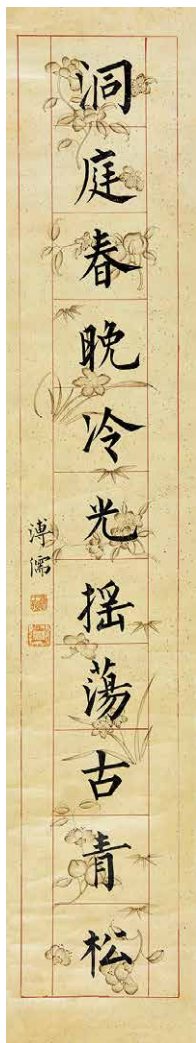 洞庭春晚冷光揺蕩古青松
溥儒